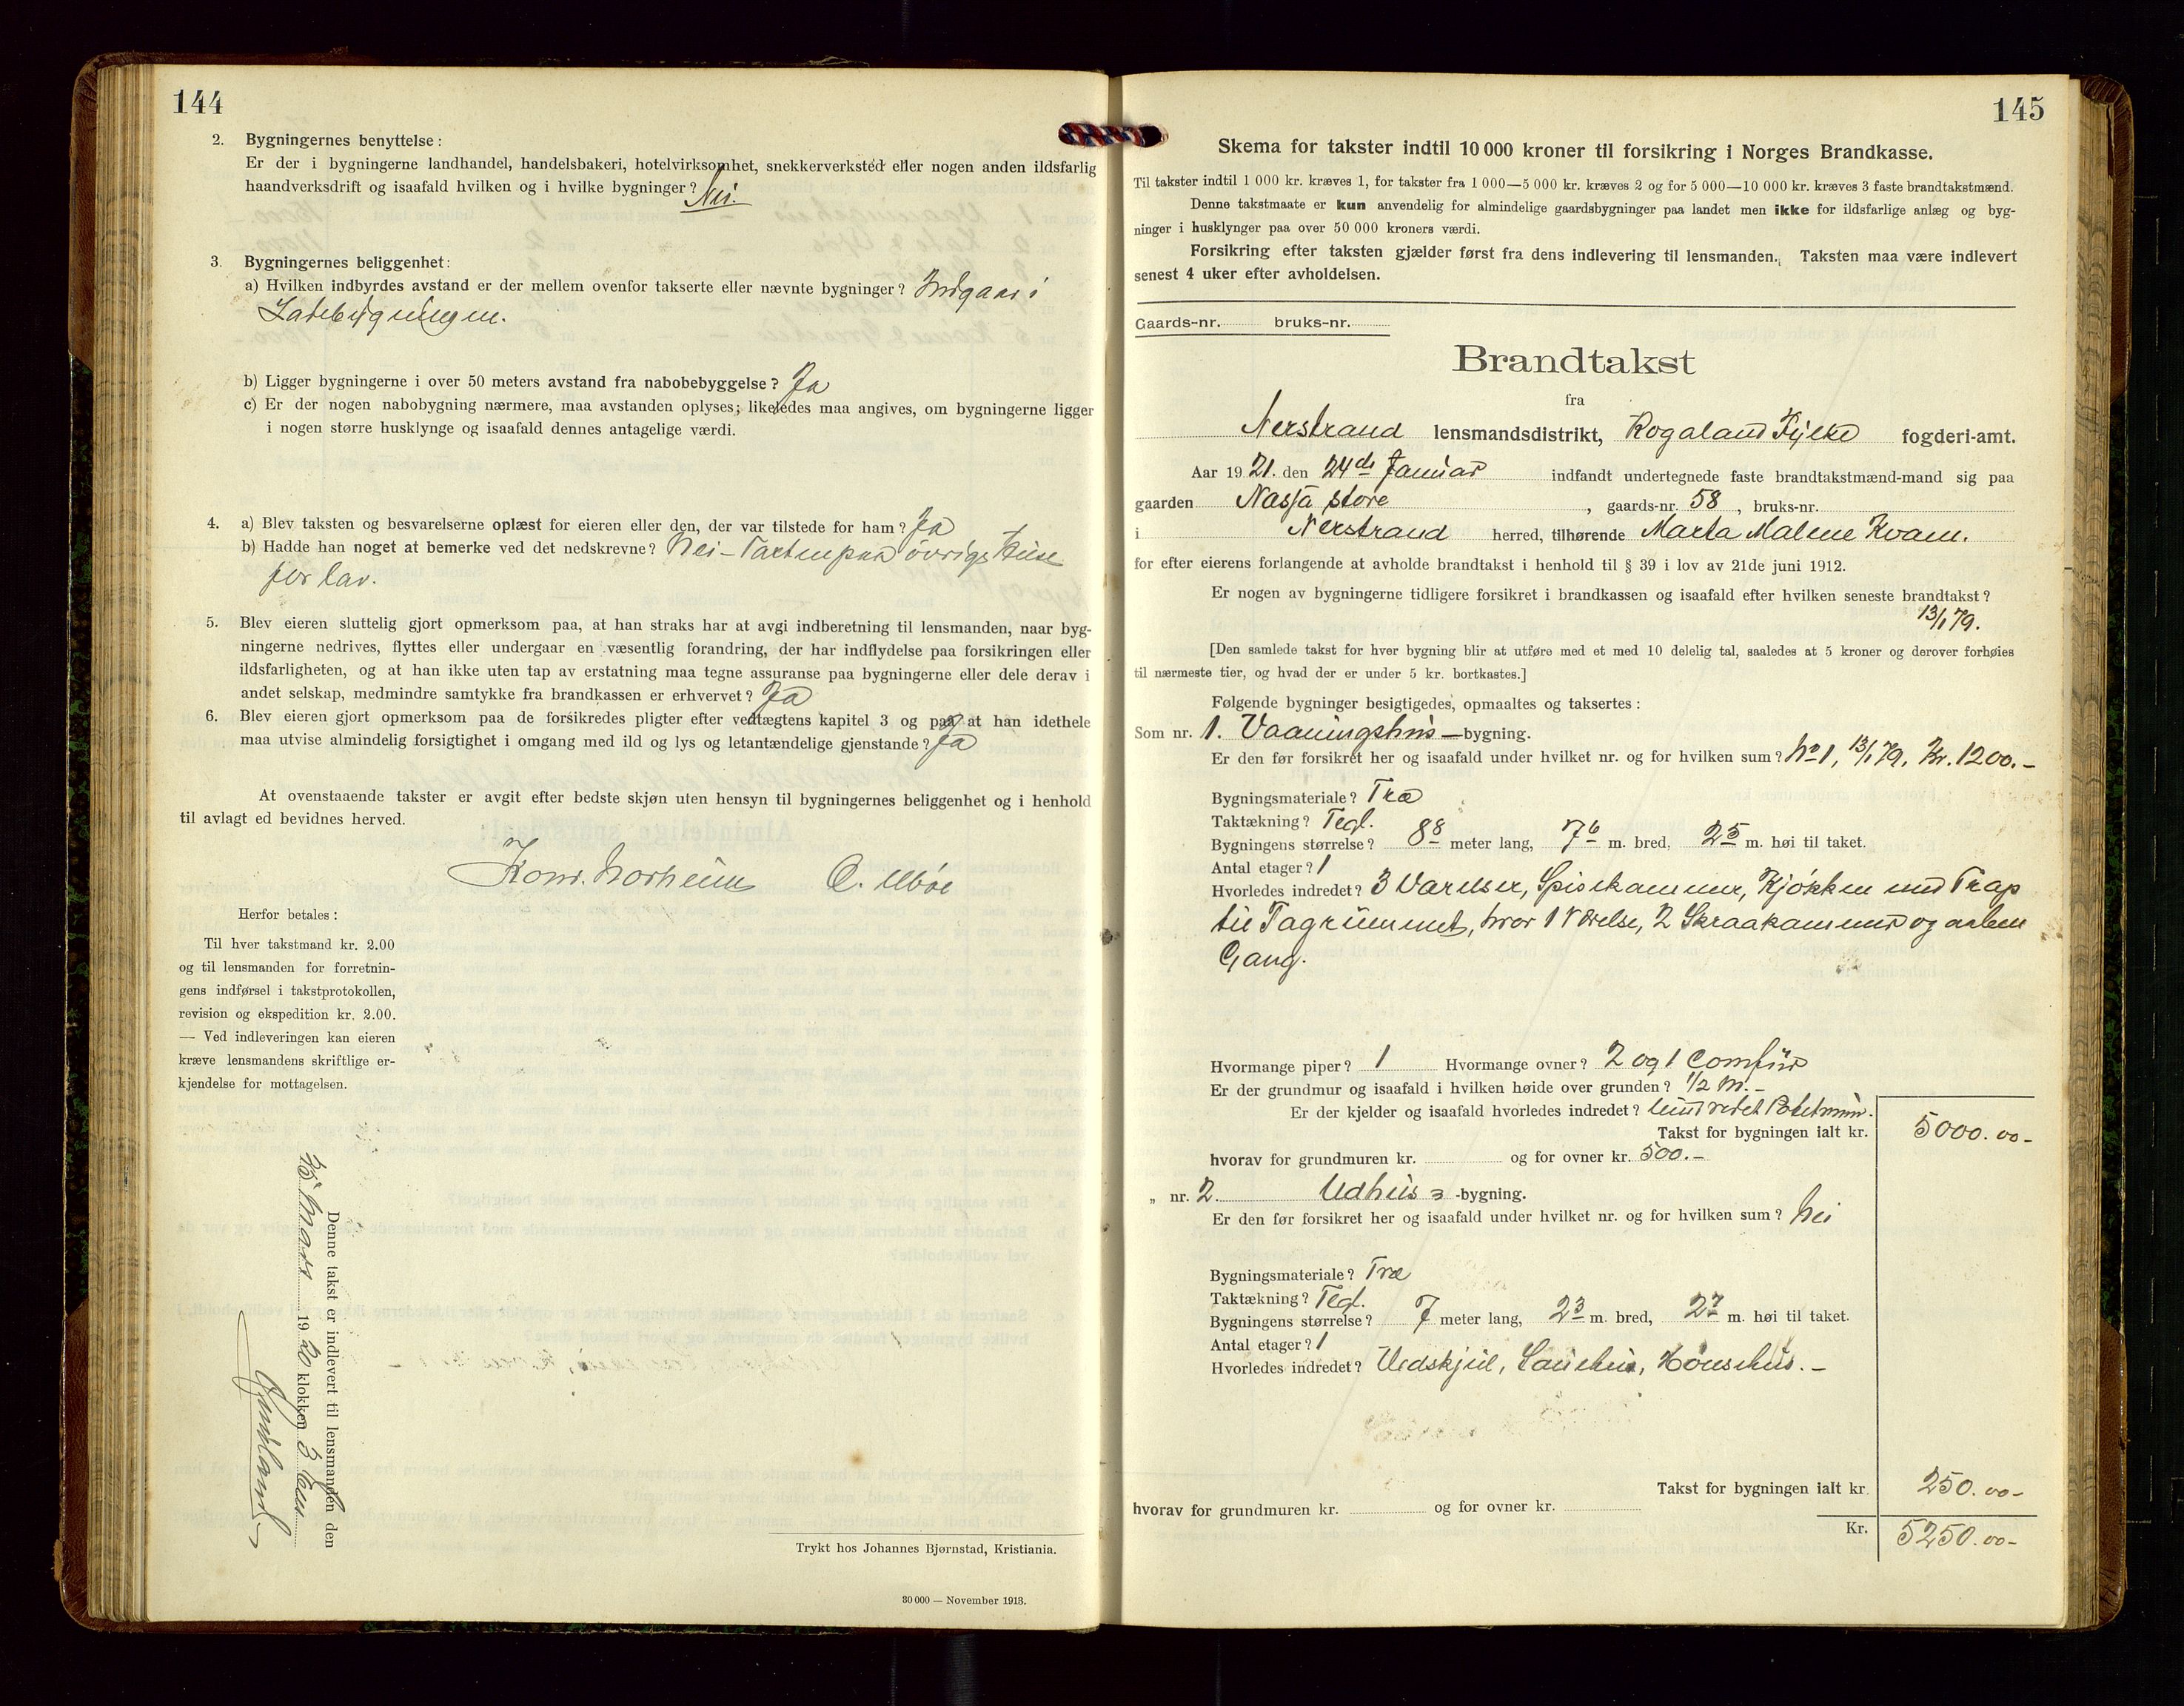 144
2. Bygningernes benyttelse:
Er der i bygningerne landhandel, handelsbakeri, hotelvirksomhet, snekkerverksted eller nogen anden ildsfarlig
haandverksdrift og isaafald hvilken og i hvilke bygninger? Nei.
3. Bygningernes beliggenhet:
a) Hvilken indbyrdes avstand er der mellem ovenfor takserte eller nævnte bygninger? Indgaar i
Ladebygningen.
b) Ligger bygningerne i over 50 meters avstand fra nabobebyggelse? Ja
c) Er der nogen nabobygning nærmere, maa avstanden oplyses; likeledes maa angives, om bygningerne ligger
i nogen større husklynge og isaafald dennes antagelige værdi.
4. a) Blev taksten og besvarelserne oplæst for eieren eller den, der var tilstede for ham? Ja
b) Hadde han noget at bemerke ved det nedskrevne? Nei – Taxten paa øvrige Huse
for lav.
5. Blev eieren sluttelig gjort opmerksom paa, at han straks har at avgi indberetning til lensmanden, naar byg-
ningerne nedrives, flyttes eller undergaar en væsentlig forandring, der har indflydelse paa forsikringen eller
ildsfarligheten, og at han ikke uten tap av erstatning maa tegne assuranse paa bygningerne eller dele derav i
andet selskap, medmindre samtykke fra brandkassen er erhvervet? Ja
6. Blev eieren gjort opmerksom paa de forsikredes pligter efter vedtægtens kapitel 3 og paa at han idethele
maa utvise almindelig forsigtighet i omgang med ild og lys og letantændelige gjenstande? Ja
At ovenstaaende takster er avgit efter bedste skjøn uten hensyn til bygningernes beliggenhet og i henhold
til avlagt ed bevidnes herved.
Konr. Norheim O. Ubøe
Herfor betales:
Til hver takstmand kr. 2.00
og til lensmanden for forretnin-
gens indførsel i takstprotokollen,
revision og ekspedition kr. 2.00.
— Ved indleveringen kan eieren
kræve lensmandens skriftlige er-
kjendelse for mottagelsen.
Denne takst er indlevert til lensmanden den
25' Mars 1920 klokken 3
Trykt hos Johannes Bjørnstad, Kristiania.
30 000 — November 1913.
145
Skema for takster indtil 10 000 kroner til forsikring i Norges Brandkasse.
Til takster indtil 1 000 kr. kræves 1, for takster fra 1 000—5 000 kr. kræves 2 og for 5 000—10 000 kr. kræves 3 faste brandtakstmænd.
Denne takstmaate er kun anvendelig for almindelige gaardsbygninger paa landet men ikke for ildsfarlige anlæg og byg-
ninger i husklynger paa over 50 000 kroners værdi.
Forsikring efter taksten gjælder først fra dens indlevering til lensmanden. Taksten maa være indlevert
senest 4 uker efter avholdelsen.
Gaards-nr. bruks-nr.
Brandtakst
fra
Nerstrand lensmandsdistrikt, Rogaland Fylke fogderi-amt.
Aar 1921. den 24de Januar indfandt undertegnede faste brandtakstmænd-mand sig paa
gaarden Nassja store, gaards-nr. 58, bruks-nr.
i Nerstrand herred, tilhørende Marta Malene Kvam.
for efter eierens forlangende at avholde brandtakst i henhold til § 39 i lov av 21de juni 1912.
Er nogen av bygningerne tidligere forsikret i brandkassen og isaafald efter hvilken seneste brandtakst?
13/1 79.
[Den samlede takst for hver bygning blir at utføre med et med 10 delelig tal, saaledes at 5 kroner og derover forhøies
til nærmeste tier, og hvad der er under 5 kr. bortkastes.]
Følgende bygninger besigtigedes, opmaaltes og taksertes:
Som nr. 1. Vaaningshus-bygning.
Er den før forsikret her og isaafald under hvilket nr. og for hvilken sum? No 1, 13/1 79, Kr. 1200.–
Bygningsmateriale? Træ
Taktækning? Tegl.
Bygningens størrelse? 8 8 meter lang, 7 6 m. bred, 2 5 m. høi til taket.
Antal etager? 1
Hvorledes indredet? 3 Værelser, Spisekammer, Kjøkken med Trap
til Tagrummet, hvor 1 Værelse, 2 Skraakammer og aaben
Gang.
Hvormange piper? 1 Hvormange ovner? 2 og 1 Comfur
Er der grundmur og isaafald i hvilken høide over grunden? 1/2 m.–
Er der kjelder og isaafald hvorledes indredet?
Takst for bygningen ialt kr. 5000.00–
hvorav for grundmuren kr. og for ovner kr. 500.–
„ nr. 2. Udhus-bygning.
Er den før forsikret her og isaafald under hvilket nr. og for hvilken sum? Nei
Bygningsmateriale? Træ
Taktækning? Tegl.
Bygningens størrelse? 7 meter lang, 2 3 m. bred, 2 7 m. høi til taket.
Antal etager? 1
Hvorledes indredet? Vedskjul, Sauehus, Hønsehus.–
Takst for bygningen ialt kr. 250.00–
hvorav for grundmuren kr. og for ovner kr.
Kr. 5250.00–